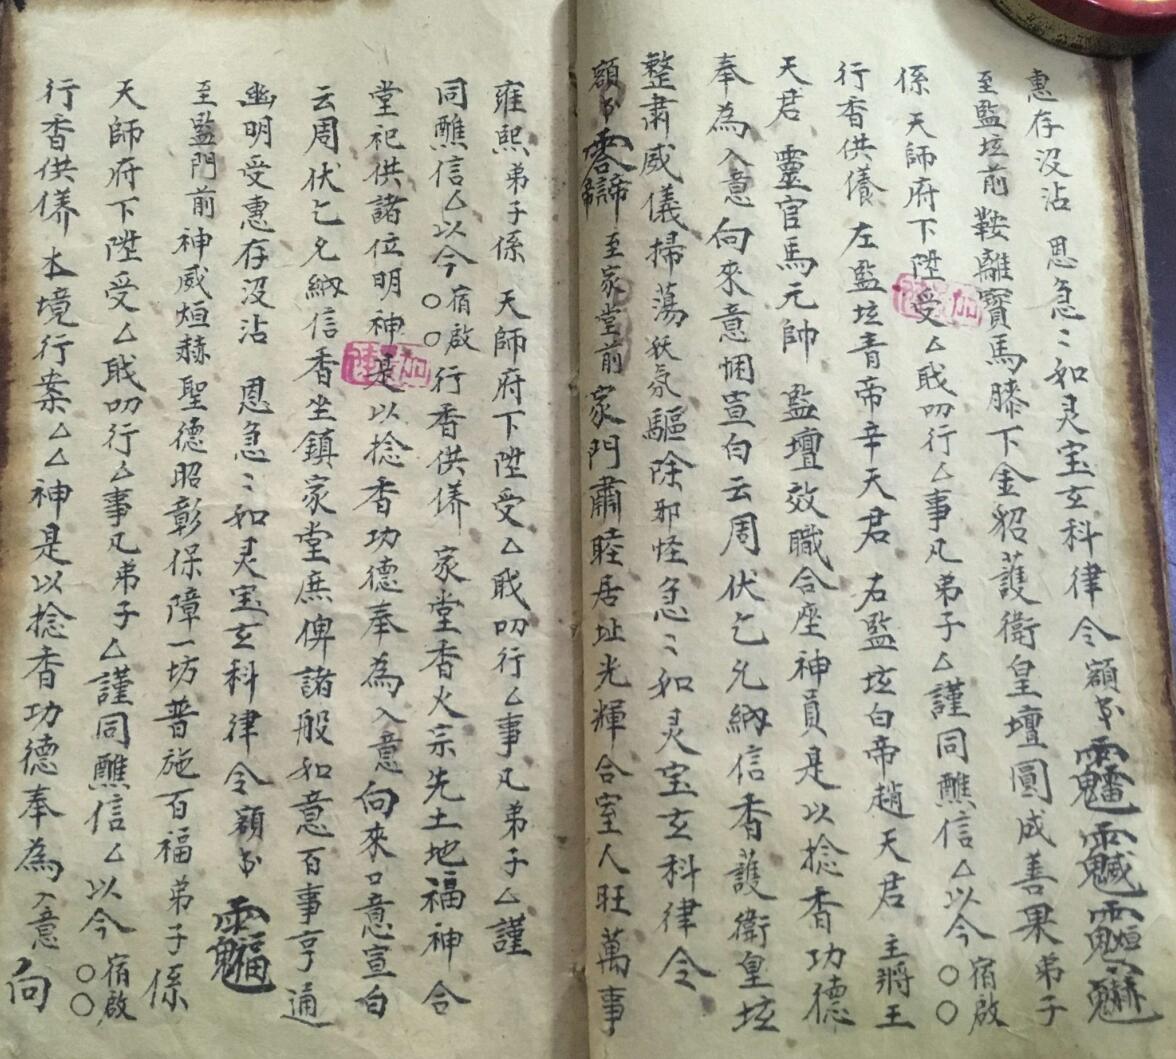 惠存没沾　恩急〻如灵宝玄科律令額
至監坛前　鞍離寳馬膝下金貂護衛皇壇圓成善果弟子
係　天師府下陞受厶戝叨行厶事凡弟子厶謹同醮信厶以今宿啟〇〇
行香供養　左監坛青帝辛天君　右監坛白帝趙天君　主將王
天君　靈官馬元帥　監壇效職合座神員是以捻香功德
奉為入意向來意悃宣白云周伏乞允納信香護衛皇坛
整肅威儀掃蕩妖氛驅除邪怪急〻如灵宝玄科律令
額　至家堂前　家門肅睦居址光輝合室人旺萬事
雍熙弟子係　天師府下陞受厶戝叨行厶事凡弟子厶謹
同醮信厶以今宿啟〇〇行香供养　家堂香火宗先土地福神合
堂祀供諸位明神是以捻香功德奉為入意向來口意宣白
云周伏乞允納信香坐鎮家堂庶俾諸般如意百事亨通
幽明受惠存没沾　恩急〻如灵宝玄科律令額
至監門前　神威烜赫聖德昭彰保障一坊普施百福弟子係
天師府下陞受厶戝叨行厶事凡弟子厶謹同醮信厶以今宿啟〇〇
行香供养　本境行案厶厶神是以捻香功德奉為入意向